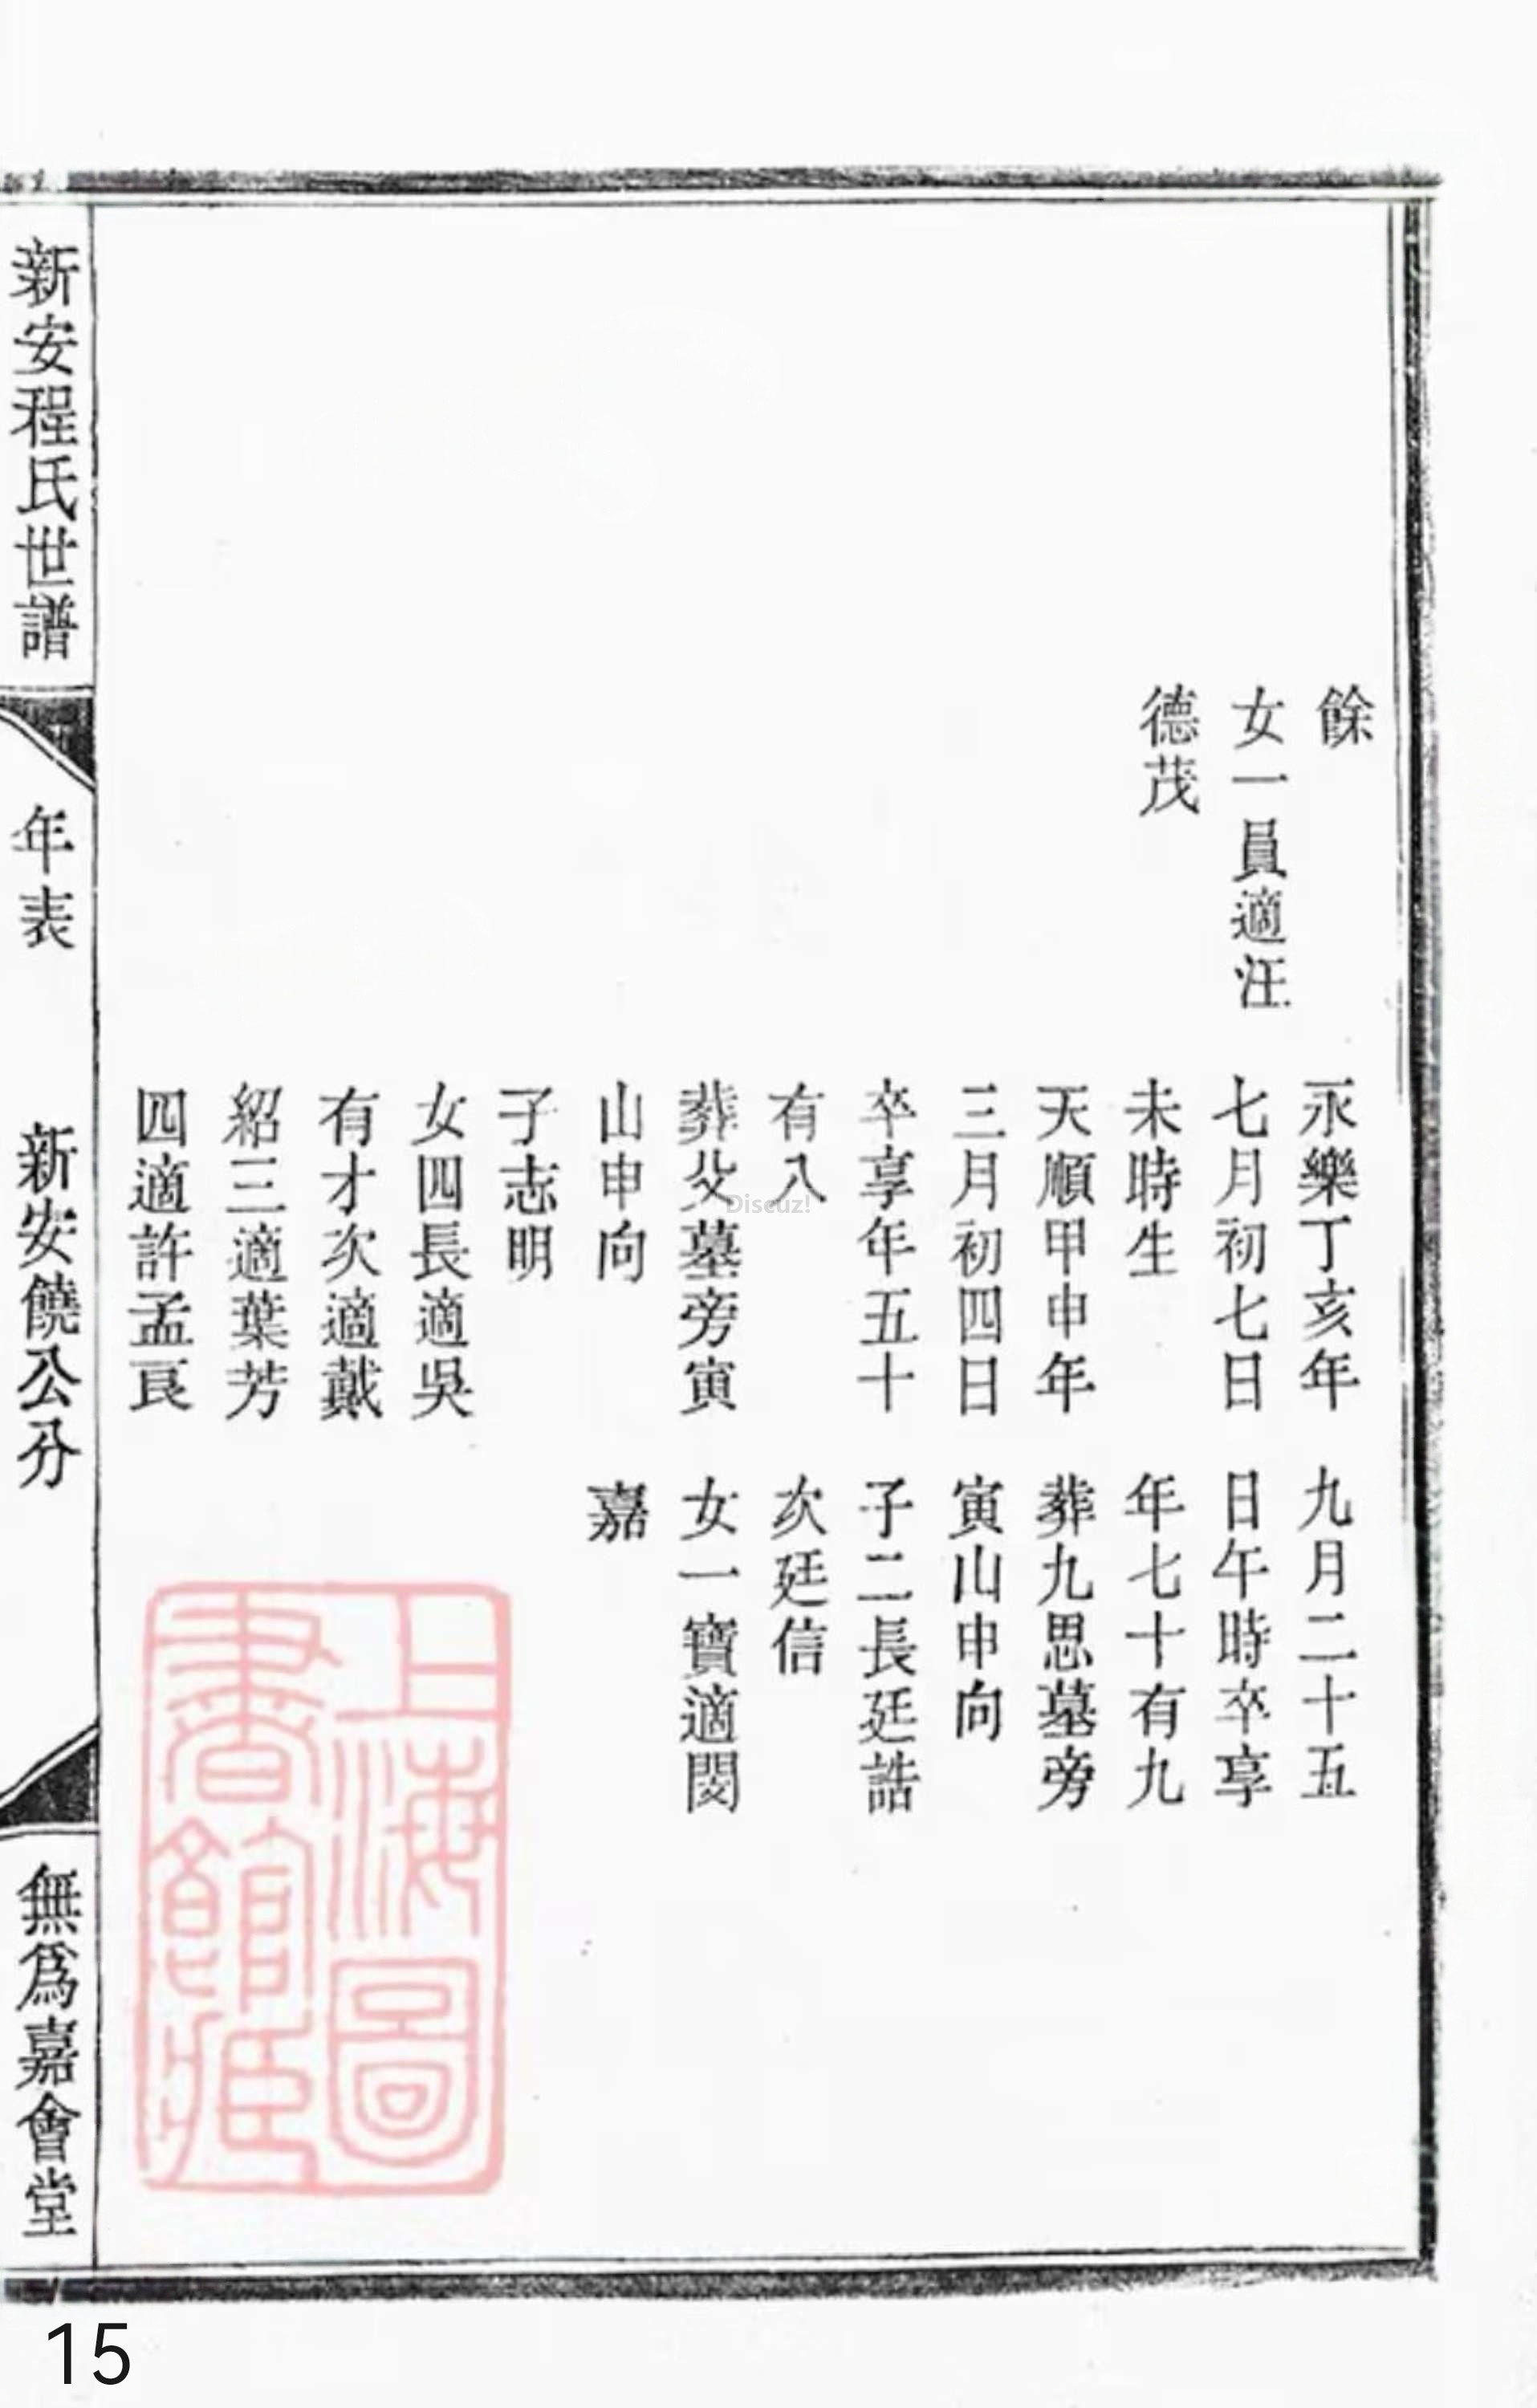 餘
女一員適汪
德茂
永樂丁亥年
七月初七日
未時生
天順甲申年
三月初四日
卒享年五十
有八
葬父墓旁寅
山申向
子志明
女四長適吳
有才次適戴
紹三適葉芳
四適許孟良
九月二十五
日午時卒享
年七十有九
葬九思墓旁
寅山申向
子二長廷誥
次廷信
女一寶適閔
嘉
新安程氏世譜
年表
新安饒公分
無爲嘉會堂
上海圖
書館藏
Discuz!
15